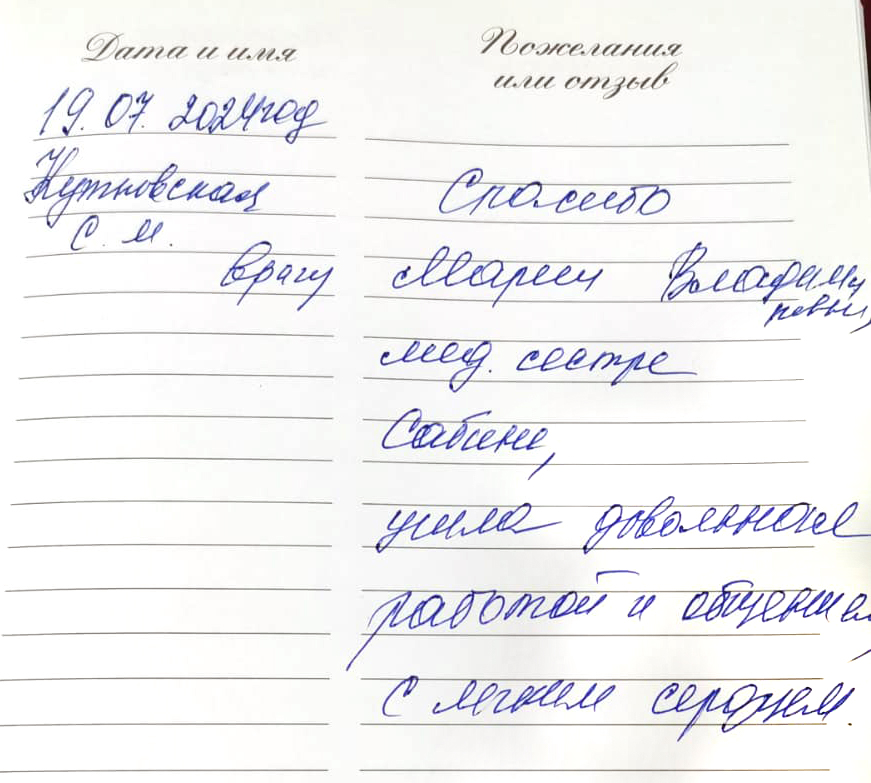 Дата и имя
Пожелания
или отзыв
19.07.2024 год
С. М.
Спасибо
врачу Марии Владими
ровны,
мед. сестре
Сабине,
ушла довольная
работой и общением,
с легким сердцем.